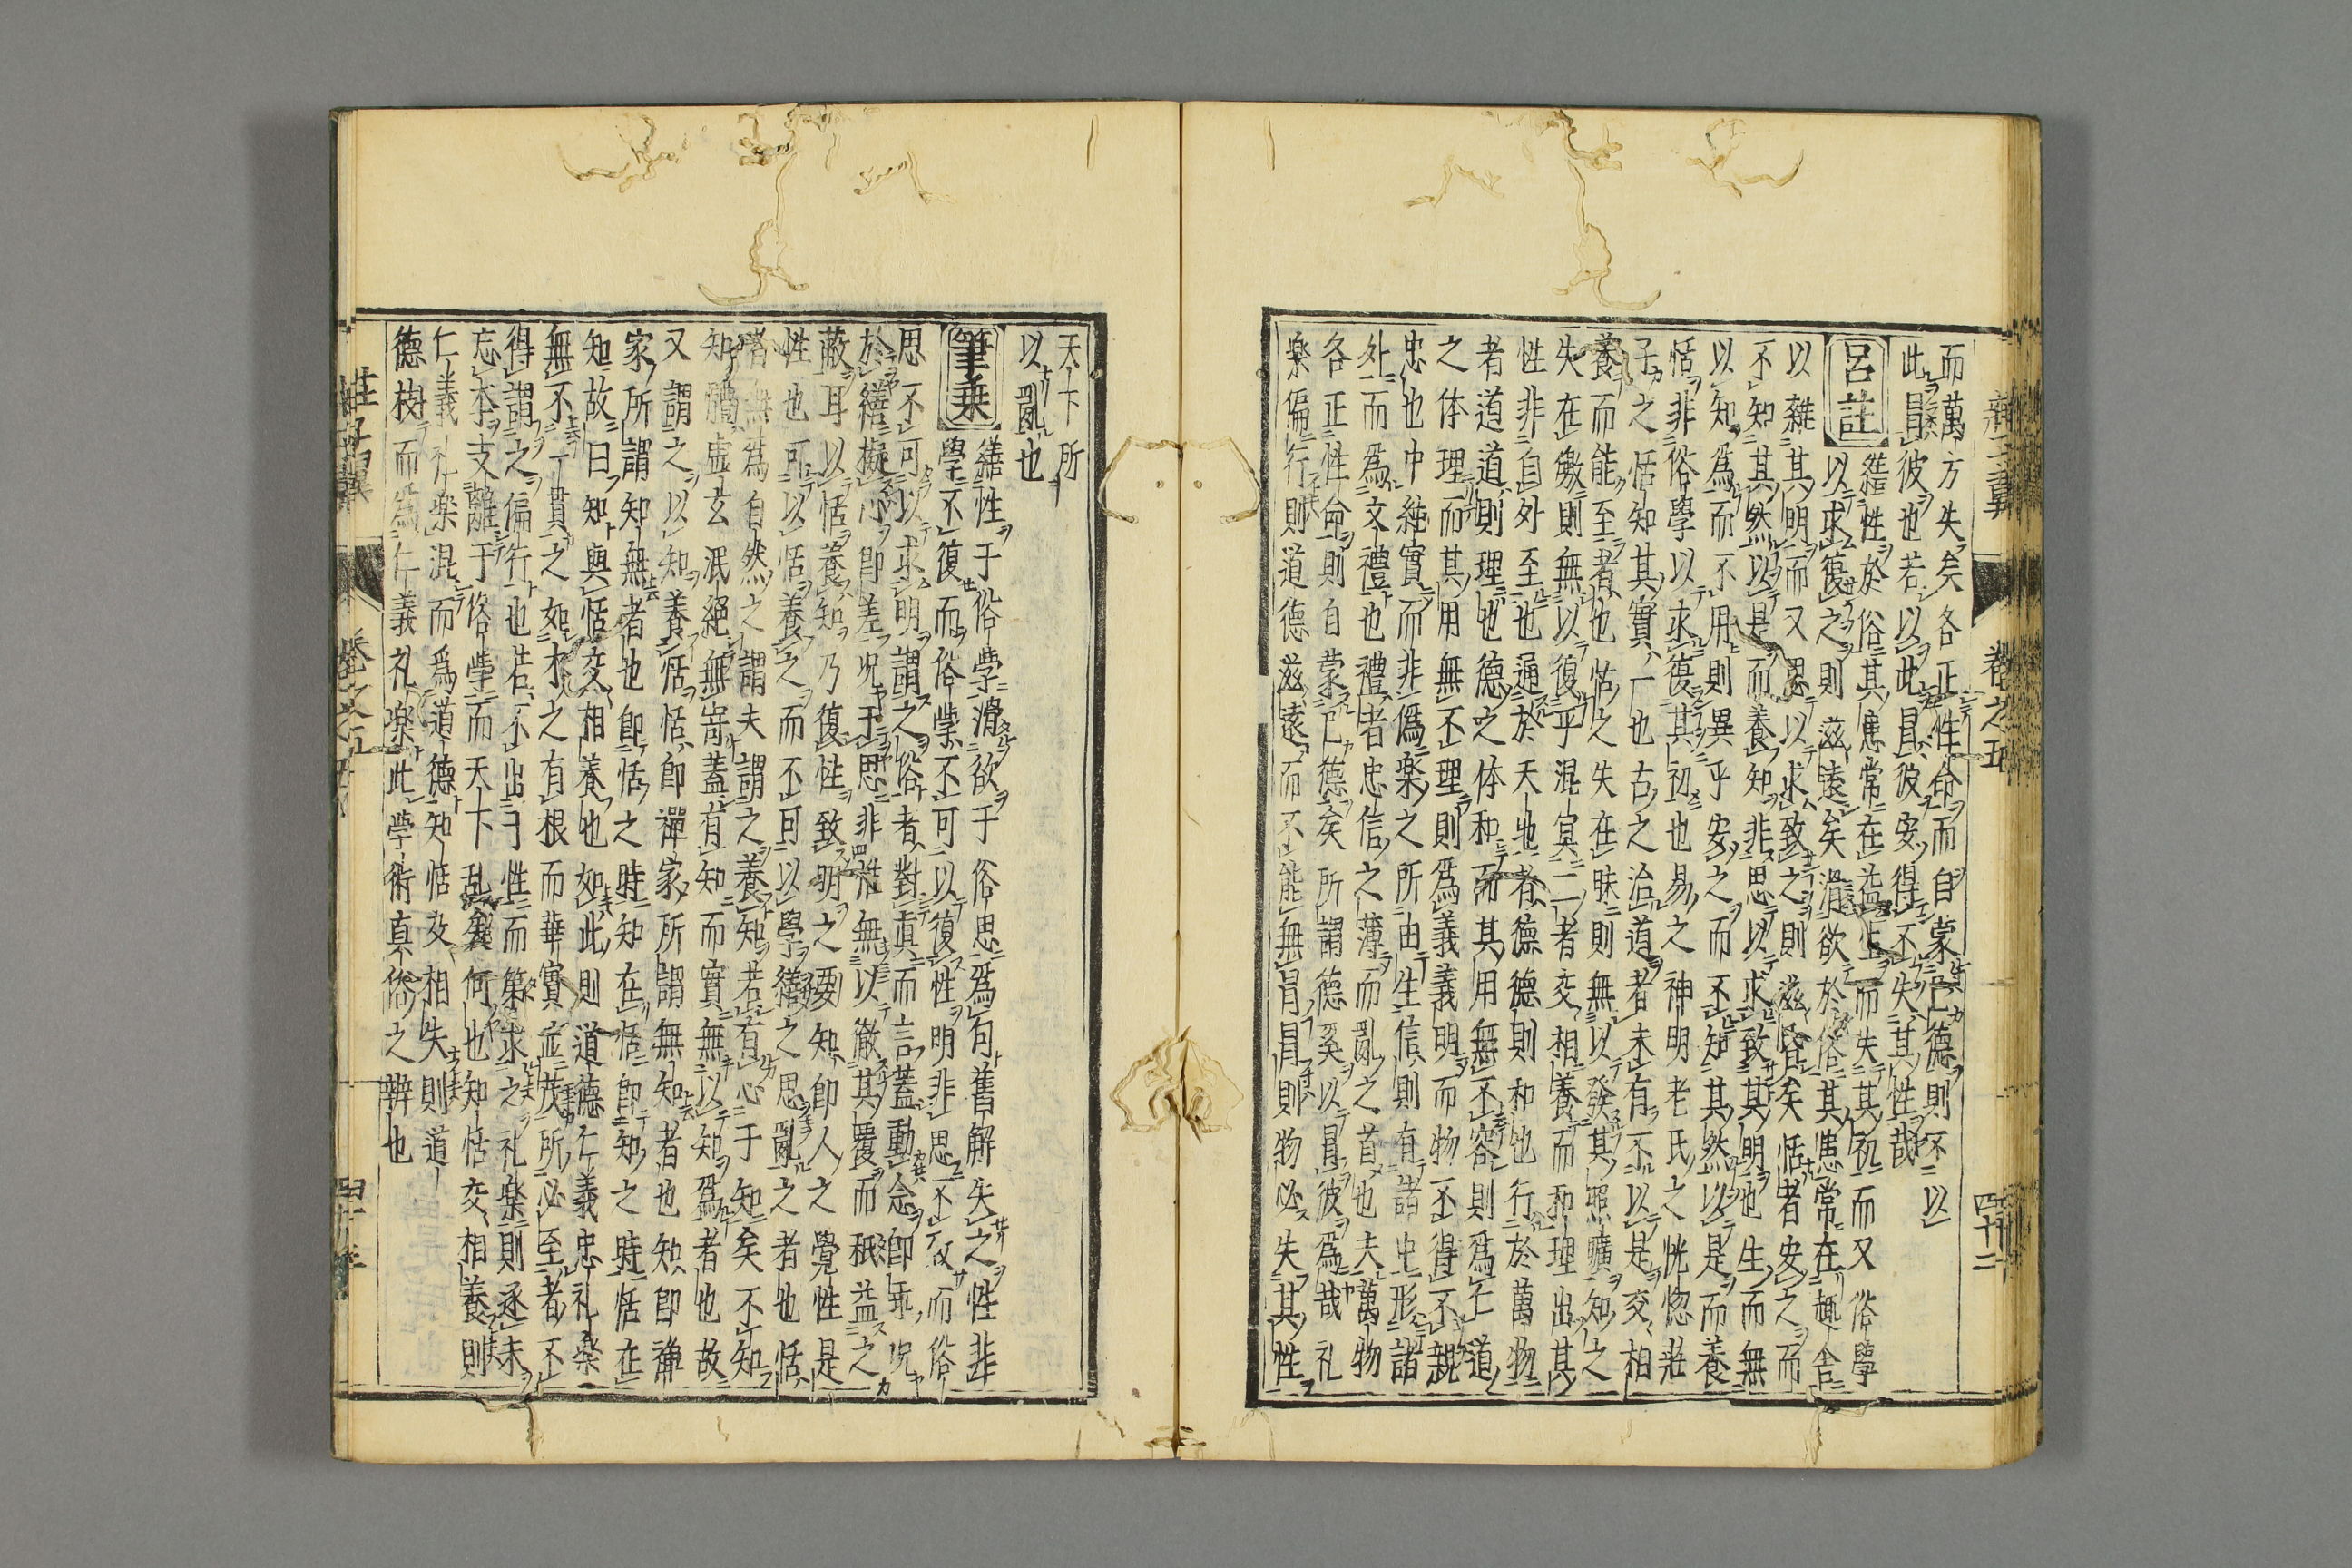 而萬方失矣各正性命而自蒙已德則不以
此冒彼也若以此冒彼安得不失其性哉
呂註
繕性於俗其患常在益生而失其初而又俗學
以求復之則滋遠矣滑欲於俗其患常在趣舍
以雜其明而又思以求致之則滋昏矣恬者安之而
不知其然以是而養知非思以求致其明也生而無
以知爲而不用則異乎安之而不知其然以是而養
恬非俗學以求復其初也易之神明老氏之恍惚莊
子之恬知其實一也古之治道者未有不以是交相
養而能至者也恬之失在昧則無以發其照曠知之
失在皦則無以復乎混冥二者交相養而和理出其
性非自外至也通於天地者德德則和也行於萬物
者道道則理也德之体和而其用無不容則爲仁道
之体理而其用無不理則爲義義明而物不得不親
忠也中純實而非僞樂之所由生信則有諸中形諸
外而爲文禮也禮者忠信之薄而亂之首也夫萬物
各正性命則自蒙已德矣所謂德奚以冒彼爲哉礼
楽偏行則道德滋遠而不能無冒冒則物必失其性
卷之五
四十二
天下所
以亂也
筆乗
繕性于俗學滑欲于俗思爲句舊解失之性非
學不復而俗學不可以復性明非思不致而俗
思不可以求明謂之俗者對真而言蓋動念即乖况
於繕擬心即差况于思非惟無以徹其覆而秖益之
蔽耳以恬養知乃復性致明之要知即人之覺性是
性也可以恬養之而不可以學繕之思亂之者也恬
者無爲自然之謂夫謂之養知若有心于知矣不知
知體虛玄泯絕無寄蓋有知而實無以知爲者也故
又謂之以知養恬恬即禪家所謂無知者也知即禪
家所謂知無者也即恬之時知在恬即知之時恬在
知故曰知與恬交相養也如此則道德仁義忠礼楽
無不一貫之如木之有根而華實並茂所必至者不
得謂之偏行也若不出于性而第求之礼楽則逐末
忘本支離于俗學而天下乱矣何也知恬交相養則
仁義礼楽混而爲道德知恬交相失則道
德枝而爲仁義礼楽此學術真俗之辨也
莊子翼
卷之五